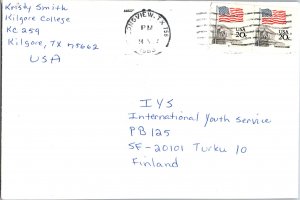 Kristy Smith
Kilgore College
KC 259
Kilgore, TX 75662
USA
LONGVIEW, TX
PM
USA 20c
USA 20c
IYS
International Youth Service
PB 125
SF-20101 Turku 10
Finland